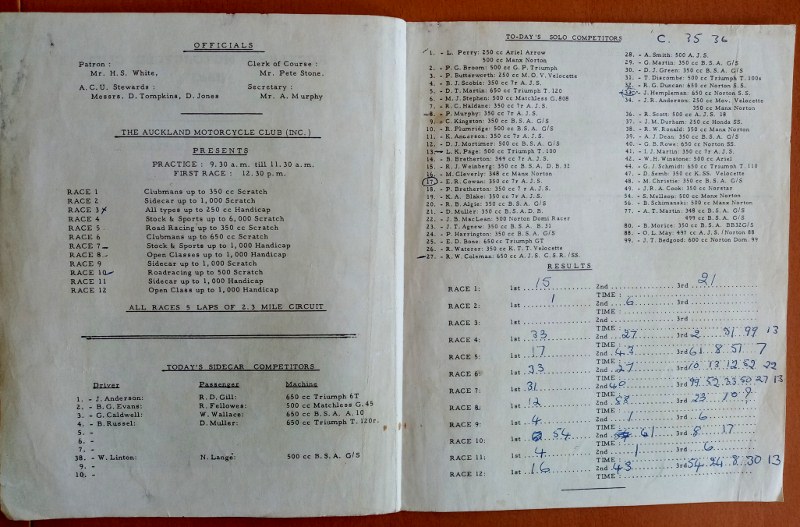 OFFICIALS
Patron : Clerk of Course :
Mr. H.S. White, Mr. Pete Stone.
A.C.U. Stewards : Secretary :
Messrs. D. Tompkins, D. Jones Mr. A. Murphy
THE AUCKLAND MOTORCYCLE CLUB (INC.)
PRESENTS
PRACTICE : 9.30 a.m. till 11.30 a.m.
FIRST RACE : 12.30 p.m.
RACE 1 Clubmans up to 350 cc Scratch
RACE 2 Sidecar up to 1,000 Scratch
RACE 3 All types up to 250 cc Handicap
RACE 4 Stock & Sports up to 6,000 Scratch
RACE 5 Road Racing up to 350 cc Scratch
RACE 6 Clubmans up to 650 cc Scratch
RACE 7 Stock & Sports up to 1,000 Handicap
RACE 8 Open Classes up to 1,000 Handicap
RACE 9 Sidecar up to 1,000 Scratch
RACE 10 Roadracing up to 500 Scratch
RACE 11 Sidecar up to 1,000 Handicap
RACE 12 Open Class up to 1,000 Handicap
ALL RACES 5 LAPS OF 2.3 MILE CIRCUIT
TODAY'S SIDECAR COMPETITORS
Driver Passenger Machine
1. - J. Anderson: R.D. Gill: 650 cc Triumph 6T
2. - B.G. Evans: R. Fellowes: 500 cc Matchless G.45
3. - G. Caldwell: W. Wallace: 650 cc B.S.A. A.10
4. - B. Russel: D. Muller: 650 cc Triumph T.120r.
5. -
6. -
7. -
38. - W. Linton: N. Lange: 500 cc B.S.A. G/S
9. -
10. -
TO-DAY'S SOLO COMPETITORS C. 35 36
1. - L. Perry: 250 cc Ariel Arrow
500 cc Manx Norton
2. - P.G. Broom: 500 cc G.P. Triumph
3. - P. Butterworth: 250 cc M.O.V. Velocette
4. - B.J. Scobie: 350 cc 7r A.J.S.
5. - D.T. Martin: 650 cc Triumph T.120
6. - M.J. Stephen: 500 cc Matchless G.80S
7. - R.C. Haldane: 350 cc 7r A.J.S.
8. - P. Murphy: 350 cc 7r A.J.S.
9. - C. Kington: 350 cc B.S.A. G/S
10. - R. Plumridge: 500 cc B.S.A. G/S
11. - K. Anderson: 350 cc 7r A.J.S.
12. - D.J. Mortimer: 500 cc B.S.A. G/S
13. - L.K. Page: 500 cc Triumph T.100
14. - B. Bretherton: 349 cc 7r A.J.S.
15. - R.J. Weinberg: 350 cc B.S.A. B.32
16. - M. Cleverly: 348 cc Manx Norton
17. - E.R. Cowan: 350 cc 7r A.J.S.
18. - P. Bretherton: 350 cc 7r A.J.S.
19. - K.A. Blake: 350 cc 7r A.J.S.
20. - R.D. Algie: 350 cc B.S.A. G/S
21. - D. Muller: 350 cc B.S.A. D.B.
22. - J.B. MacLean: 500 Norton Domi Racer
23. - J.T. Agrew: 350 cc B.S.A. B.31
24. - P. Herrington: 350 cc B.S.A. G/S
25. - E.D. Bone: 650 cc Triumph GT
26. - R. Waterer: 350 cc K.T.T. Velocette
27. - R.W. Coleman: 650 cc A.J.S. C.S.R./SS.
28. - A. Smith: 500 A.J.S.
29. - G. Martin: 350 cc B.S.A. G/S
30. - D.J. Green: 350 cc B.S.A. G/S
31. - T. Discombe: 500 cc Triumph T.100s
- R.G. Duncan: 650 cc Norton S.S.
- J. Hempleman: 650 cc Norton S.S.
34. - J.R. Anderson: 250 cc Mov. Velocette
350 cc Manx Norton
36. - R. Scott: 500 cc A.J.S. 18
37. - J.M. Durham: 250 cc Honda SS.
38. - R.W. Ronald: 350 cc Manx Norton
39. - A.J. Dean: 350 cc B.S.A. G/S
40. - G.B. Rowe: 650 cc Norton SS.
41. - I.J. Martin: 350 cc 7r A.J.S.
42. - W.H. Winstone: 500 cc Ariel
44. - G.J. Schmidt: 650 cc Triumph T.110
47. - D. Senb: 350 cc K.SS. Velocette
48. - M. Christie: 350 cc B.S.A. G/S
49. - J.B.A. Cook: 350 cc Norstar
54. - E. McIleon: 500 cc Manx Norton
56. - B. Schimanski: 500 cc Manx Norton
77. - A.T. Martin: 348 cc B.S.A. G/S
499 cc B.S.A. G/S
80. - B. Morice: 350 cc B.S.A. BB32G/S
88. - O.L. May: 497 cc A.J.S./Norton 88
99. - J.T. Bedgood: 600 cc Norton Dom. 99
RESULTS
RACE 1: 1st 15 2nd 3rd 21
TIME :
RACE 2: 1st 1 2nd 6 3rd
TIME :
RACE 3: 1st 2nd 3rd
TIME :
RACE 4: 1st 33 2nd 27 3rd 2 31 99 13
TIME :
RACE 5: 1st 17 2nd 43 3rd 61 8 51 7
TIME :
RACE 6: 1st 33 2nd 27 3rd 10 13 12 52 22
TIME :
RACE 7: 1st 31 2nd 40 3rd 99 52 33 50 27 13
TIME :
RACE 8: 1st 12 2nd 58 3rd 23 10 9
TIME :
RACE 9: 1st 4 2nd 1 3rd 6
TIME :
RACE 10: 1st 54 2nd 61 3rd 8 17
TIME :
RACE 11: 1st 4 2nd 1 3rd 6
TIME :
RACE 12: 1st 16 2nd 43 3rd 54 34 8 30 13
TIME :